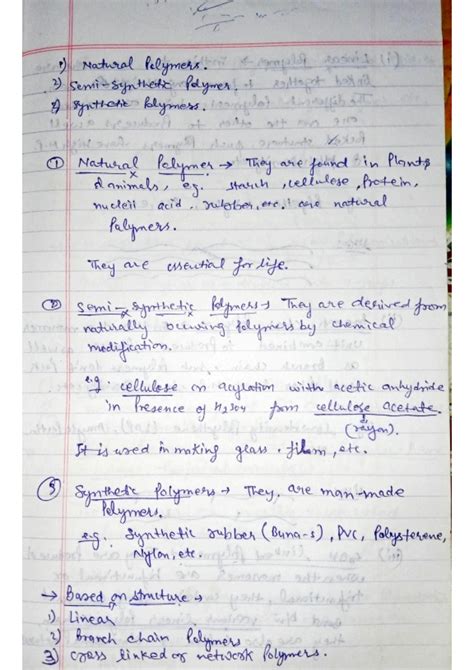 1) Natural Polymers.
2) Semi-Synthetic Polymer.
3) Synthetic Polymers.
① Natural Polymer → They are found in Plants
& animals, eg. starch, cellulose, Protein,
nucleii acid, rubber, etc. are natural
Polymers.
They are essential for life.
② Semi-Synthetic Polymers → They are derived from
naturally occuring Polymers by chemical
modification.
e.g. cellulose on acylation with acetic anhydride
in Presence of H2SO4 from cellulose acetate
(rayon).
It is used in making glass, film, etc.
③ Synthetic Polymers → They, are man-made
Polymers.
e.g. Synthetic rubber (Buna-s), PVC, Polysterene,
Nylon, etc.
→ Based on structure →
1) Linear
2) Branch chain Polymers
3) cross linked or network Polymers.